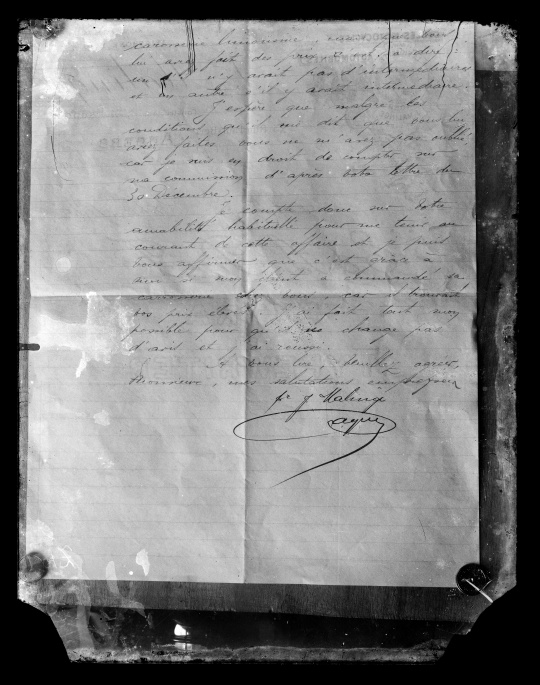 carrosserie limousine, vous
lui avez fait des prix, c'est à dire:
un s'il n'y avait pas d'intermédiaires
et un autre s'il y avait intermédiaire.
J'espère que malgré les
conditions qu'il me dit que vous lui
avez faites vous ne m'avez pas oublié
car je suis en droit de compter sur
ma commission d'après votre lettre du
30 Décembre.
Je compte donc sur votre
amabilité habituelle pour me tenir au
courant de cette affaire et je puis
vous affirmer que c'est grâce à
moi si mon client a commandé sa
carrosserie chez vous, car il trouvait
vos prix élevés. J'ai fait tout mon
possible pour qu'il ne change pas
d'avis et j'ai réussi.
A vous lire, veuillez agréer,
Monsieur, mes salutations empressées